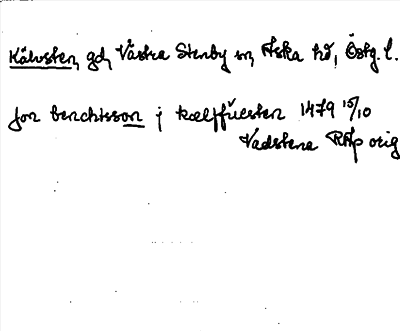 Kälvsten, gd, Västra Stenby sn, Aska hd, Östg. l.
jon benchtsson j kælffuesten 1479 15/10
Vadstena RAp orig